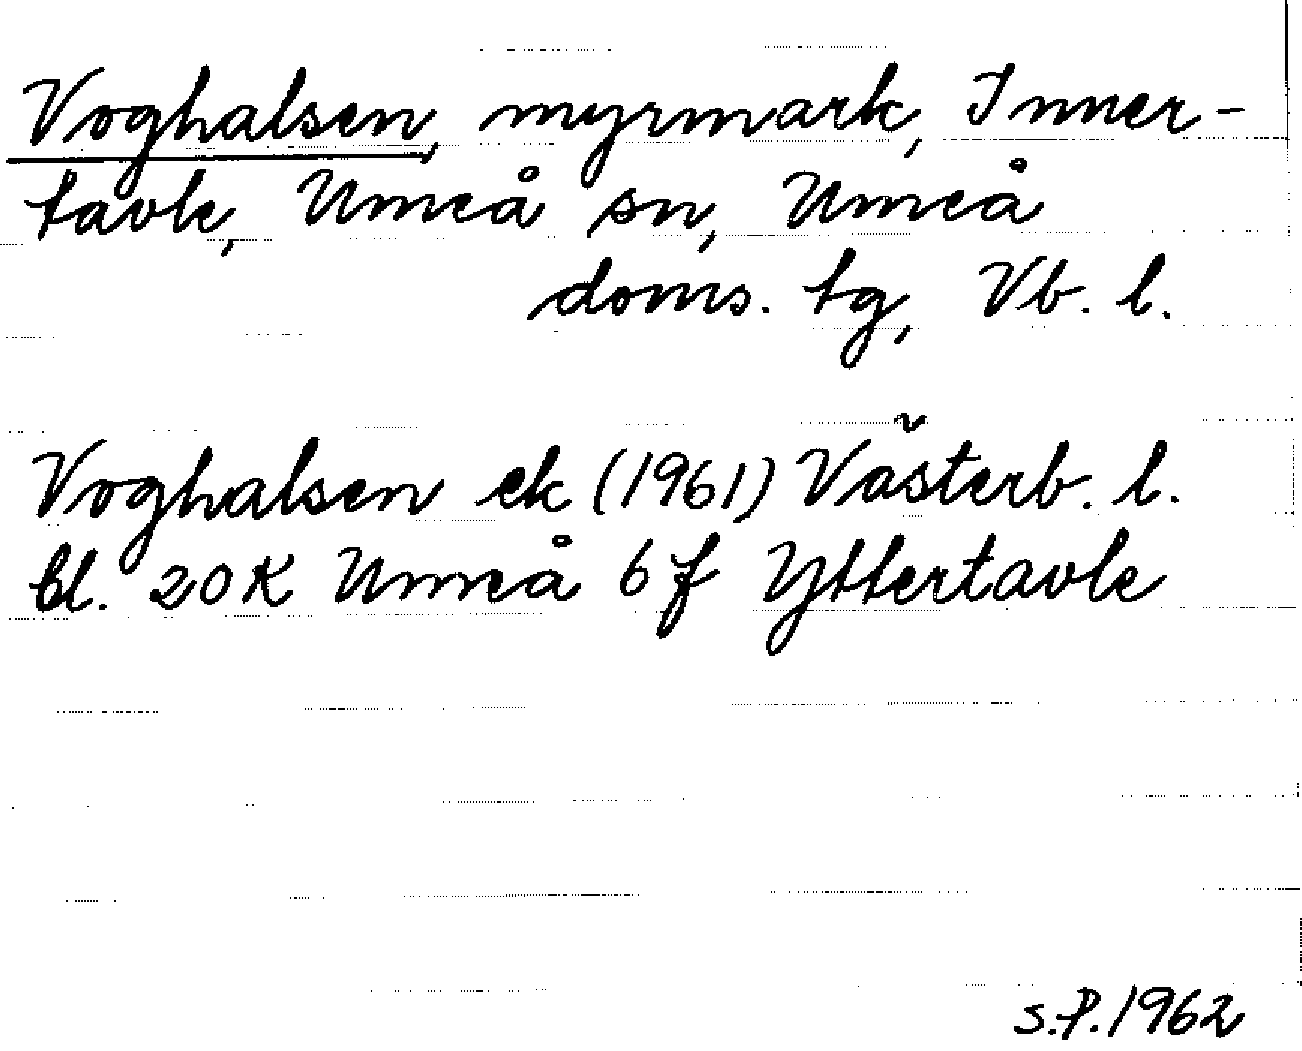 Voghalsen, myrmark, Inner-
tavle, Umeå sn, Umeå
doms. tg, Vb. l.
Voghalsen ek (1961) Västerb. l.
bl. 20 K Umeå 6 f Yttertavle
S.P. 1962